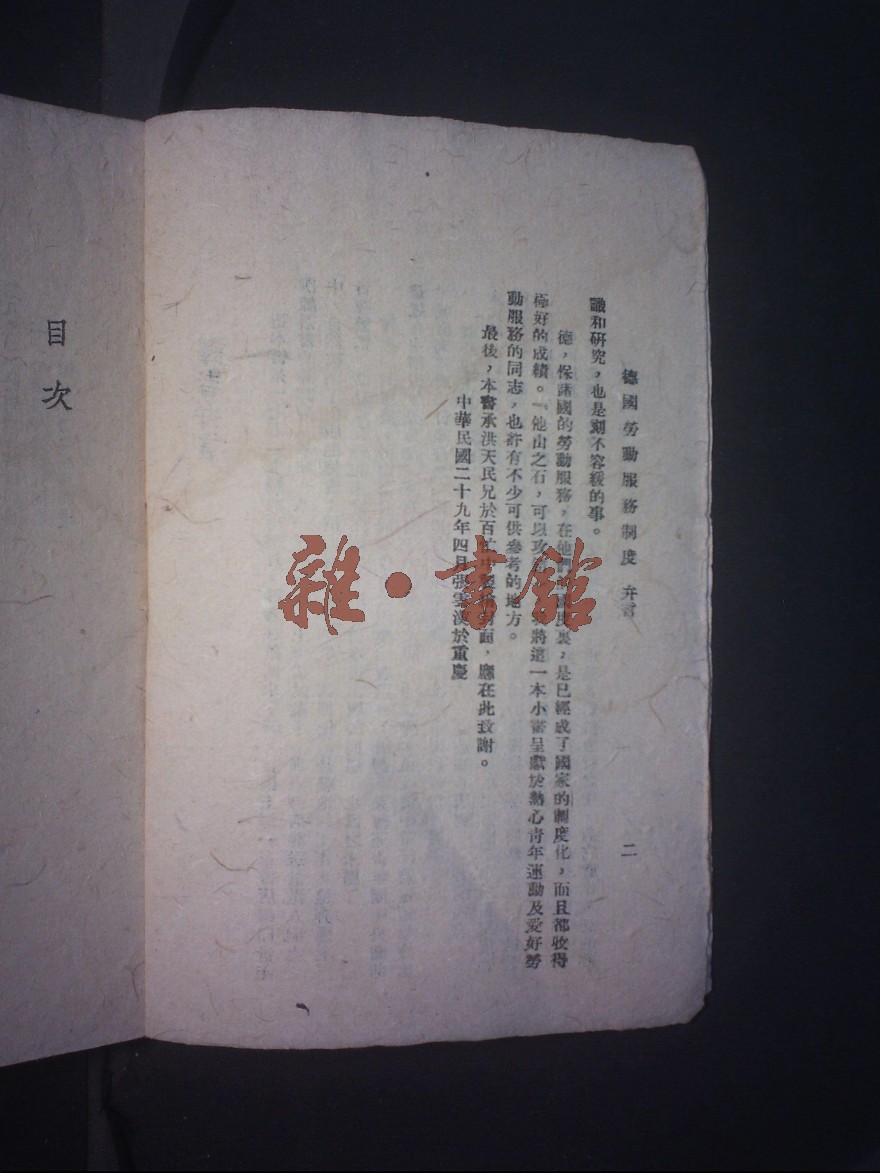 德國勞動服務制度 弁言 二
識和研究,也是刻不容緩的事。
德,保諸國的勞動服務,在他們國度裏,是已經成了國家的制度化,而且都收得
極好的成績。「他山之石,可以攻 將這一本小書呈獻於熱心青年運動及愛好勞
動服務的同志,也許有不少可供參考的地方。
最後,本書承洪天民兄於百忙中 封面,應在此致謝。
中華民國二十九年四月張 漢於重慶
目次
雜·書館